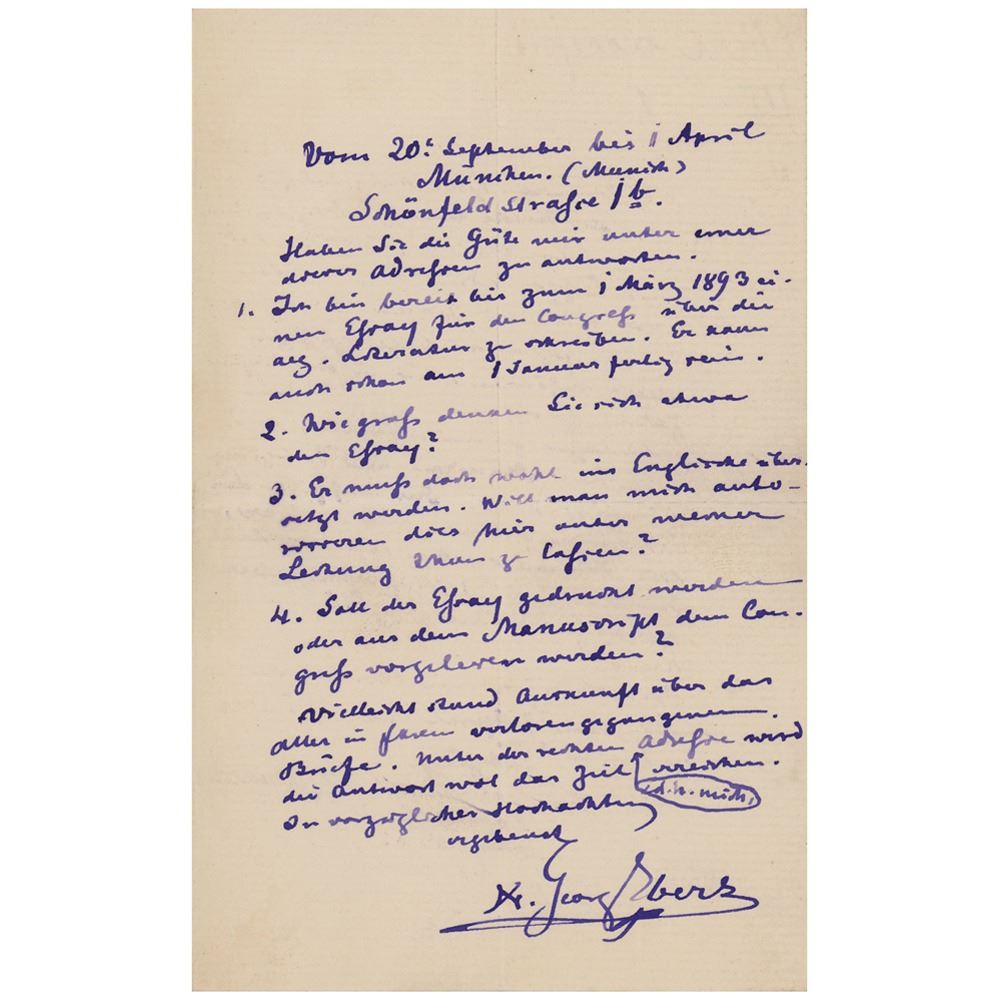 Vom 20t September bis 1 April
München. (Munich)
Schönfeld Strasse 1 b.
Haben Sie die Güte mir unter einer
dieser Adressen zu antworten.
1. Ich bin bereit bis zum 1 März 1893 ei-
nen Essay für den Congress über die
aeg. Literatur zu schreiben. Er kann
auch schon am 1 Januar fertig sein.
2. Wie gross denken Sie sich etwa
den Essay?
3. Er muss doch wohl ins Englische über-
setzt werden. Will man mich auto-
risieren dies hier unter meiner
Leitung thun zu lassen?
4. Soll der Essay gedruckt werden
oder aus dem Manuscript dem Con-
gress vorgelesen werden?
Vielleicht stand Auskunft über das
alles in Ihrem verlorengegangenen
Briefe. Unter der rechten Adresse wird
die Antwort wol das Ziel erreichen.
(d. h. mich)
In vorzüglicher Hochachtung
ergebenst
Dr. Georg Ebers